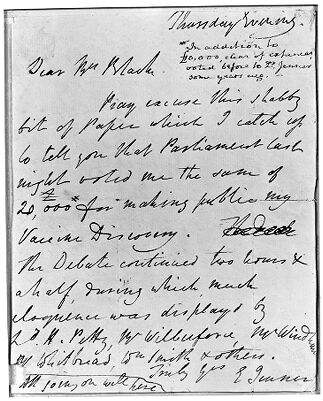 Thursday Evening.
*In addition to
£10,000, clear of expences
voted before to Dr. Jenner
some years ago.
Dear Mrs Black.
Pray excuse this shabby
bit of Paper which I catch up
to tell you that Parliament last
night voted me the sum of
20,000£* for making public my
Vaccine Discovery.
The Debate continued two hours &
a half, during which much
eloquence was displayd by
Ld. H. Petty, Mr Wilberforce, Mr Windham
Whitbread, Wm Smith & others.
Truly Yrs E Jenner